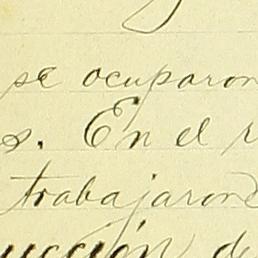 se ocuparon
s. En el r
trabajaron
ucción de